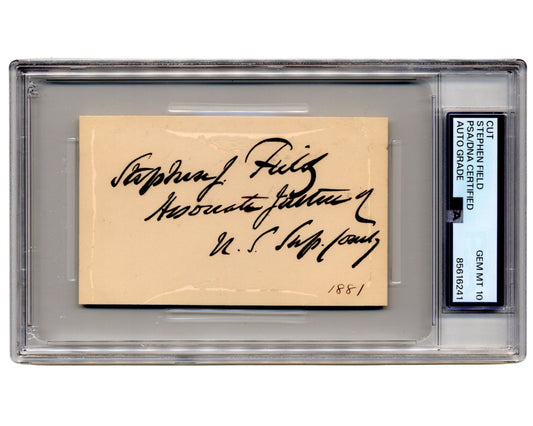 Stephen J. Field
Associate Justice of
U. S. Sup. Court
1881
CUT
STEPHEN FIELD
PSA/DNA CERTIFIED
AUTO GRADE
GEM MT 10
85616241